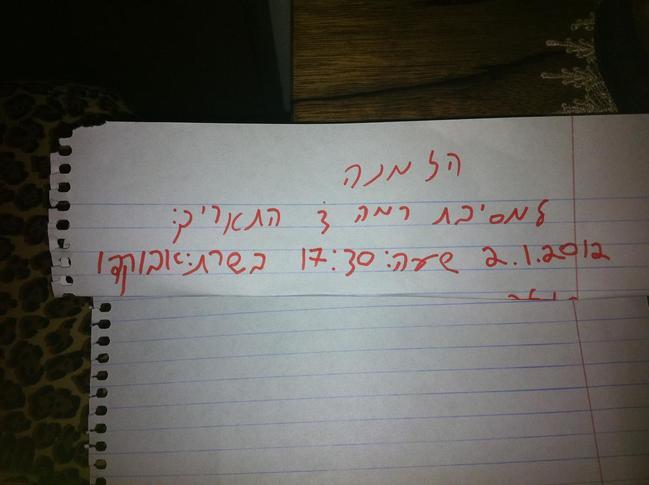 הזמנה
למסיבת רמה 3 התאריך:
2.1.2012 שעה: 17:30 בשרת: אבוקדו